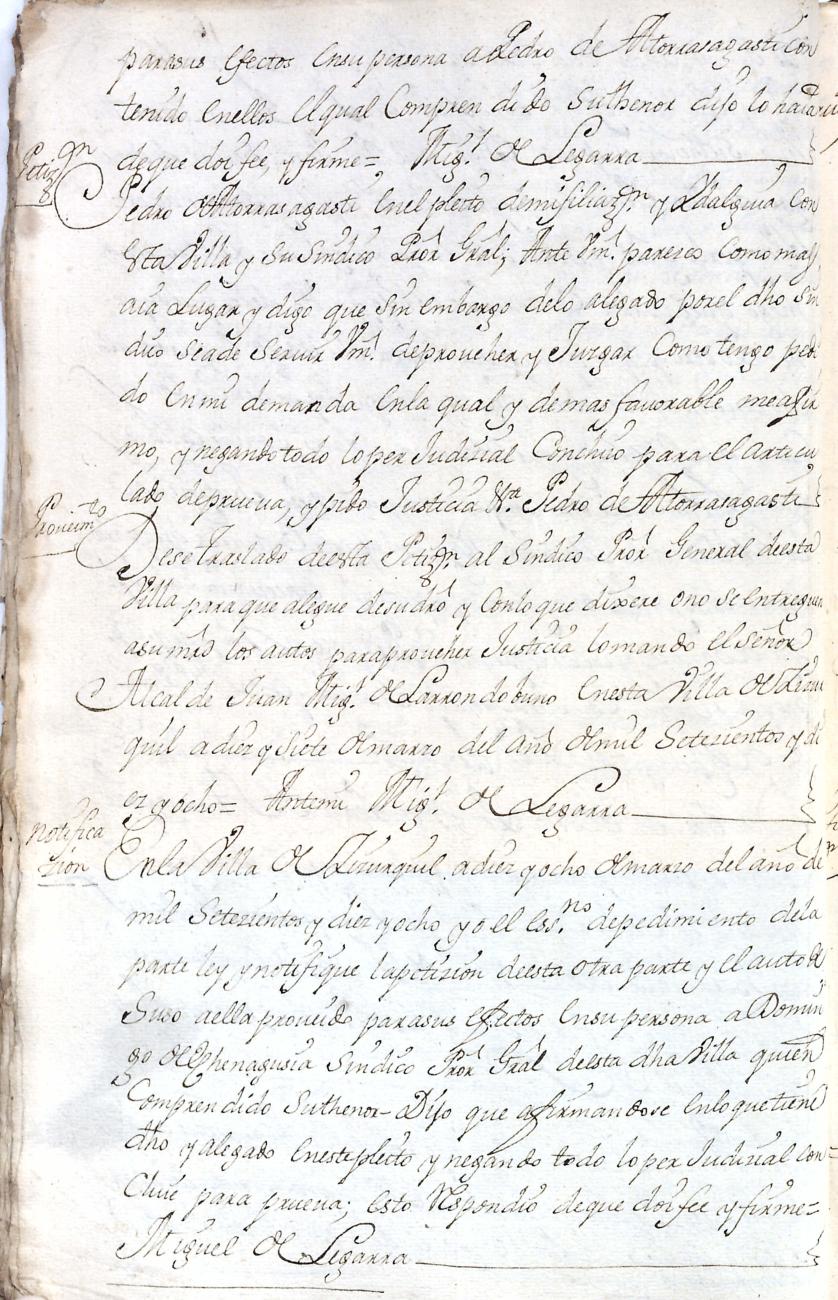 parasus efectos Ensu persona aPedro de Altorrasagasti con
tenido Enellos El qual Compren di do Suthenor dijo lo haia
Petizon
deque doi fee, y firme= Migl. de Legarra
Pedro deAltorrasagasti Enel pleito demifiliazn. y Ydalguia con
Esta Villa y Su Sindico Pror Gral; Ante Vm. paresco Como mas
aia Lugar y digo que Sin embargo delo alegado porel dho Sin
dico Seade Servir Vm. deproveher y Juzgar Como tengo pedi
do En mi demanda Enla qual y demas favorable meafir
mo, y negando todo lo per Judizial Concluio para El articu
lado deprueva, y pido Justicia &ta. Pedro deAltorrasagasti
Proveimto
Dese traslado deesta Petizn. al Sindico Pror General deesta
Villa paraque alegue desu dro y Conlo que dixere ono Se entreguen
asu mrd los autos paraproveher Justicia lo mando El Señor
Alcalde Juan Migl. deLarrondobuno Enesta Villa deLizur
quil adiez y Siete demarzo del año demil Setezientos y di
ez y ocho= Antemi Migl. de Legarra
notifica
zion
Enla Villa de Lizurquil adiez y ocho demarzo del año de
mil Setezientos y diez y ocho yo el Essno. depedimiento dela
parte ley y notifique lapetizion deesta otra parte y el auto de
Suso aella proveido parasus efectos Ensu persona aDomin
go deEchenagusia Sindico Pror Gral deesta dha Villa quien
Comprendido Suthenor Dijo que afirmandose Enloquetiene
dho y alegado Enestepleito y negando todo lo per Judizial con=
Cluie para prueva; Esto Respondio deque doi fee y firme=
Miguel de Legarra